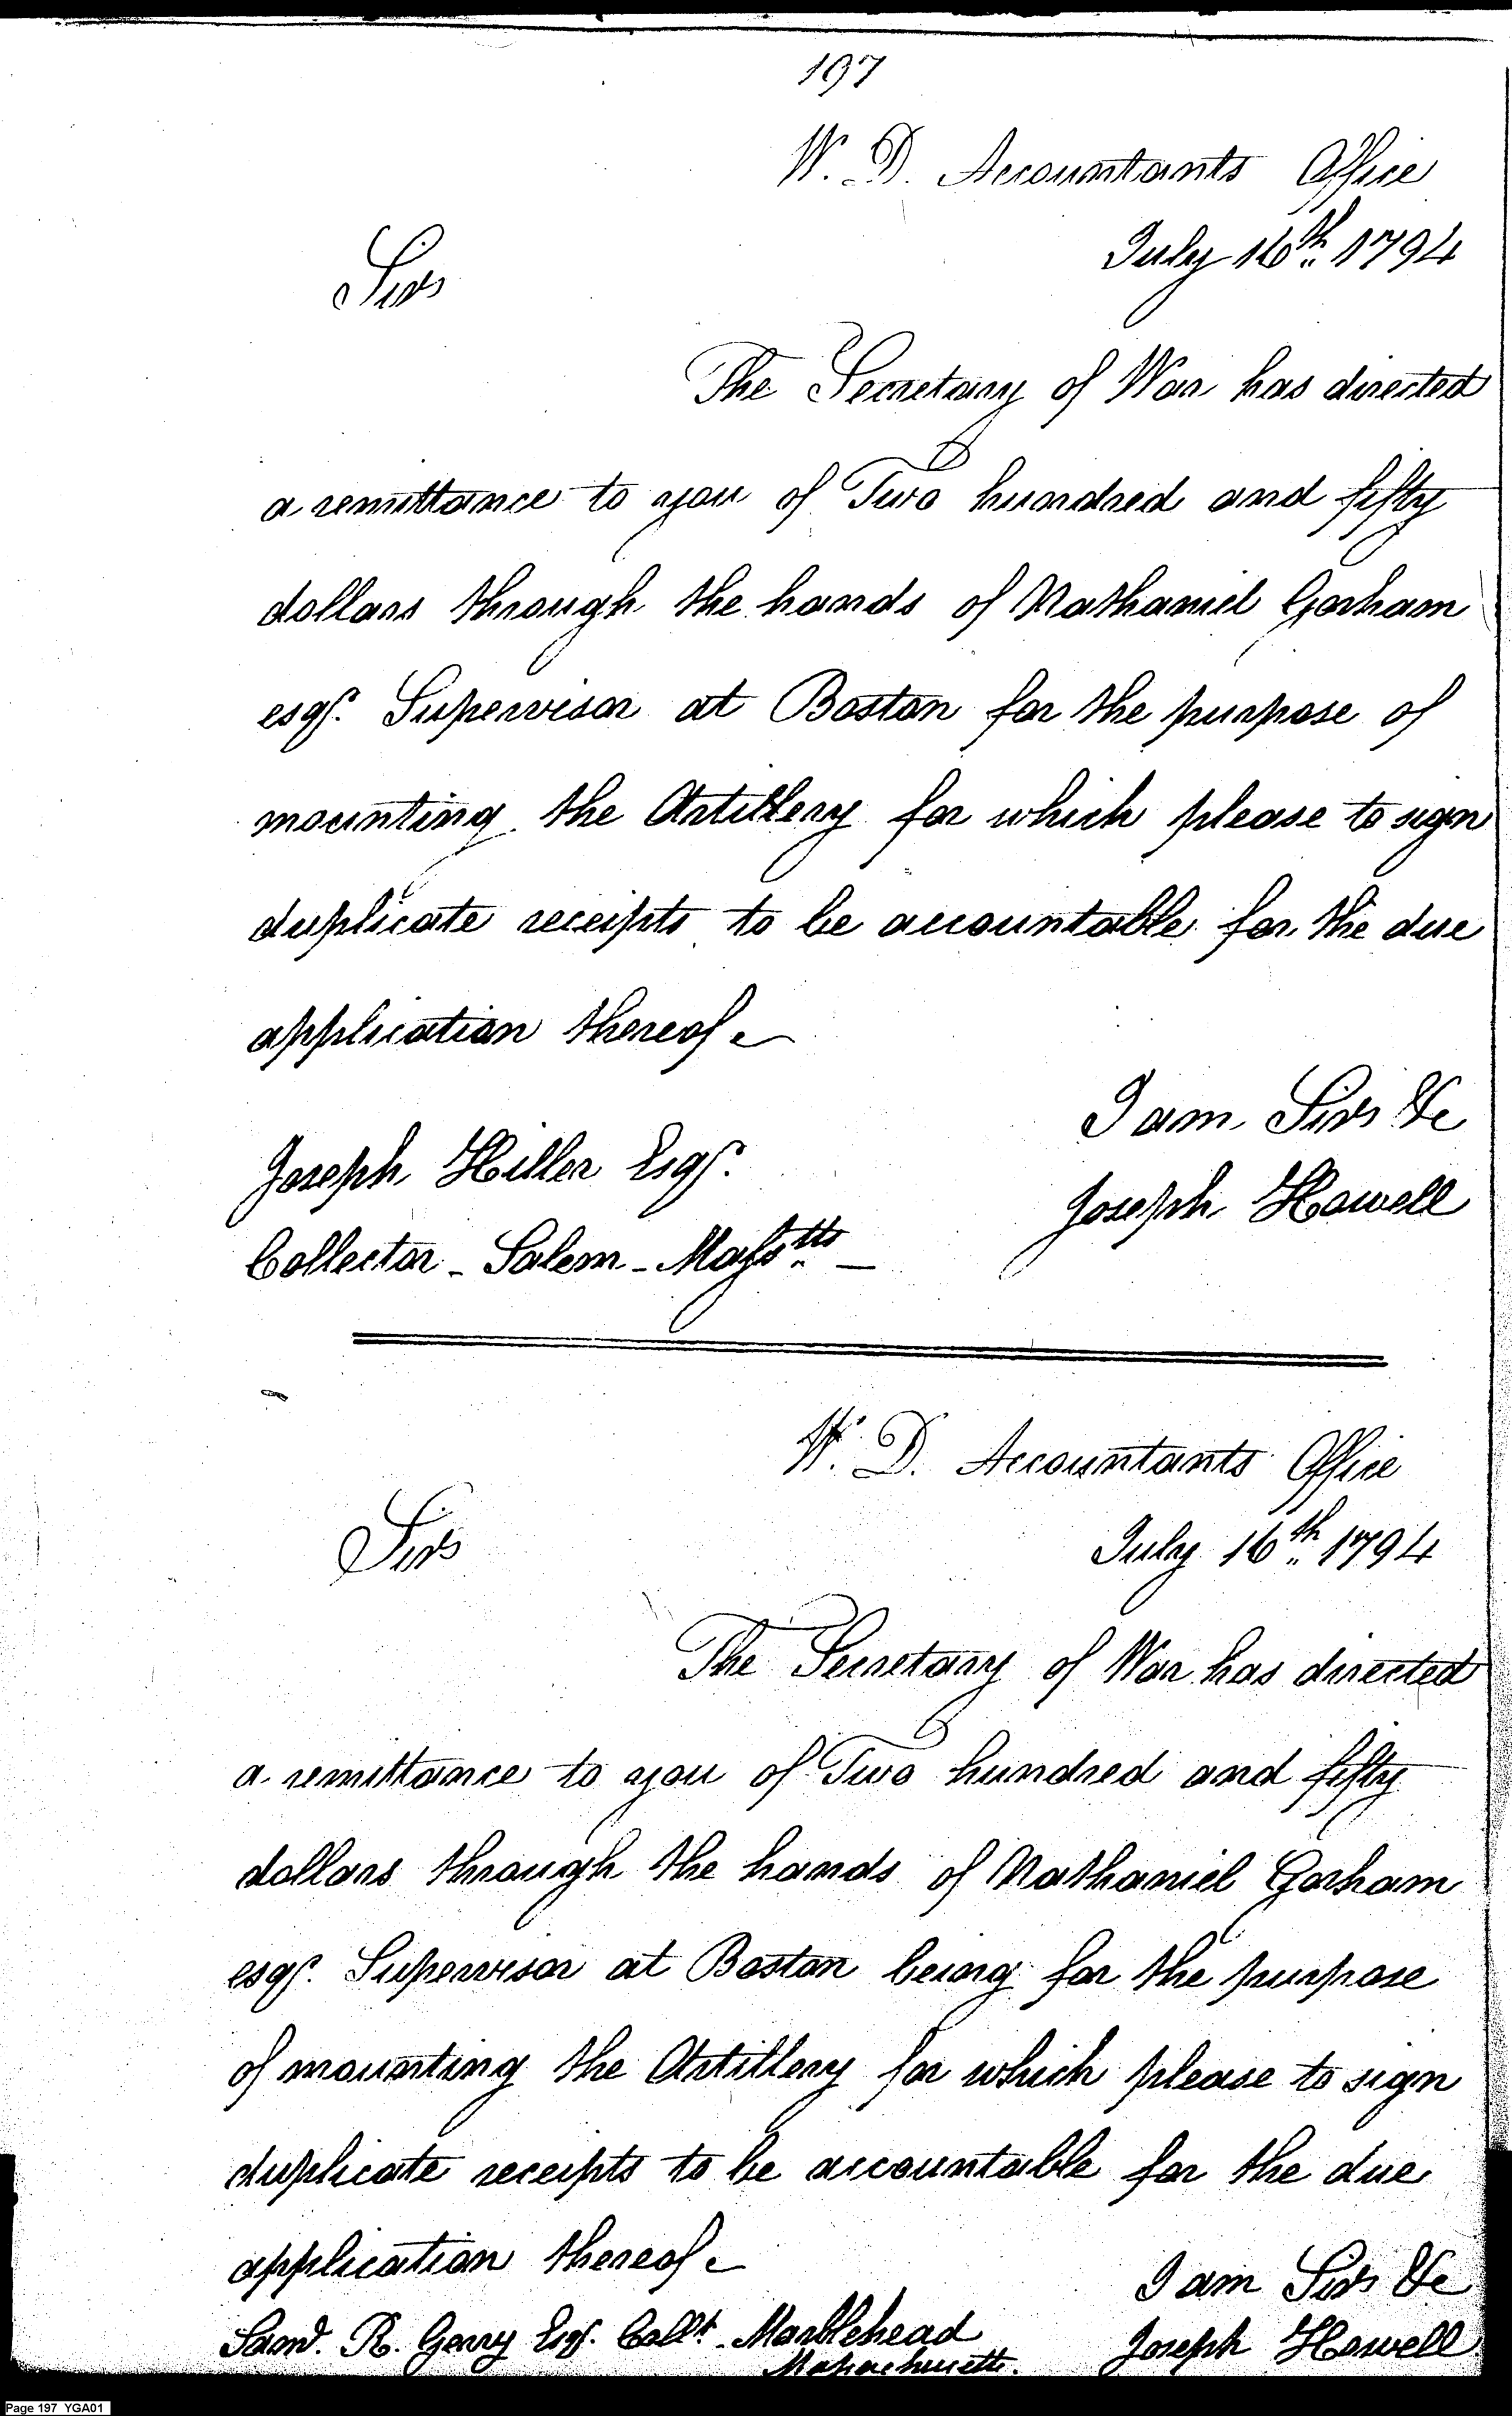 197
W. D. Accountants Office
July 16th 1794
Sir
The Secretary of War has directed
a remittance to you of Two hundred and fifty
dollars through the hands of Nathaniel Gorham
esqr. Supervisor at Boston for the purpose of
mounting the Artillery for which please to sign
duplicate receipts to be accountable for the due
application thereof
I am Sir &c
Joseph Hiller Esqr.
Joseph Howell
Collector - Salem - Masstts —
W. D. Accountants Office
July 16th 1794
Sir
The Secretary of War has directed
a remittance to you of Two hundred and fifty
dollars through the hands of Nathaniel Gorham
esqr. Supervisor at Boston being for the purpose
of mounting the Artillery for which please to sign
duplicate receipts to be accountable for the due
application thereof
I am Sir &c
Saml. R. Gerry Esqr. Collr. Marblehead
Massachusetts.
Joseph Howell
Page 197 YGA01